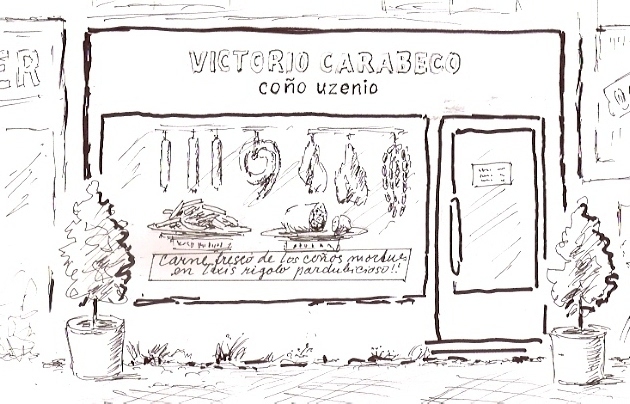 VICTORIO CARABECO
coño uzenio
ER
Carne fresco de los coños mortue
en taxis rigolo pardubicioso!!